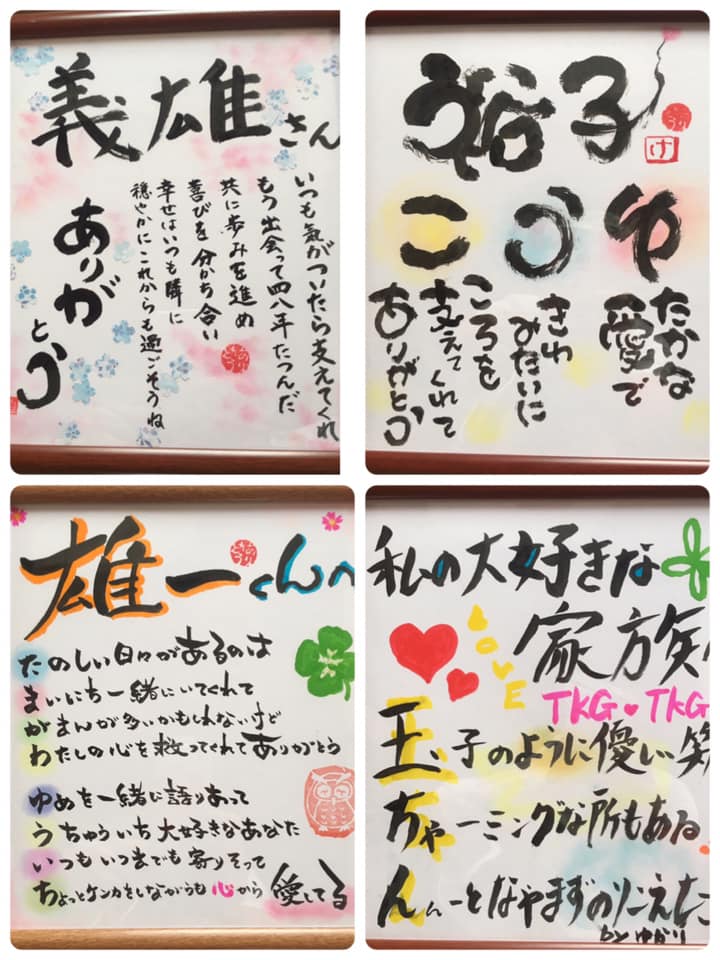 義雄さん
いつも気がついたら支えてくれ
もう出会って四八年たつんだ
共に歩みを進め
喜びを分かち合い
幸せはいつも隣に
穏やかにこれからも過ごそうね
ありがとう
裕子
け
ゆたかな
愛で
うきわ
みたいに
こころを
支えてくれて
ありがとう
雄一くんへ
たのしい日々があるのは
まいにち一緒にいてくれて
がまんが多いかもしれないけど
わたしの心を救ってくれてありがとう
ゆめを一緒に語りあって
うちゅういち大好きなあなた
いついつまでも寄りそって
ちょっとケンカをしながらも心から愛してる
私の大好きな
家族
LOVE
TKG♥TKG
玉子のように優しい笑
ちゃーミングな所もある。
んんーとなやまずのりこえた
by ゆかり